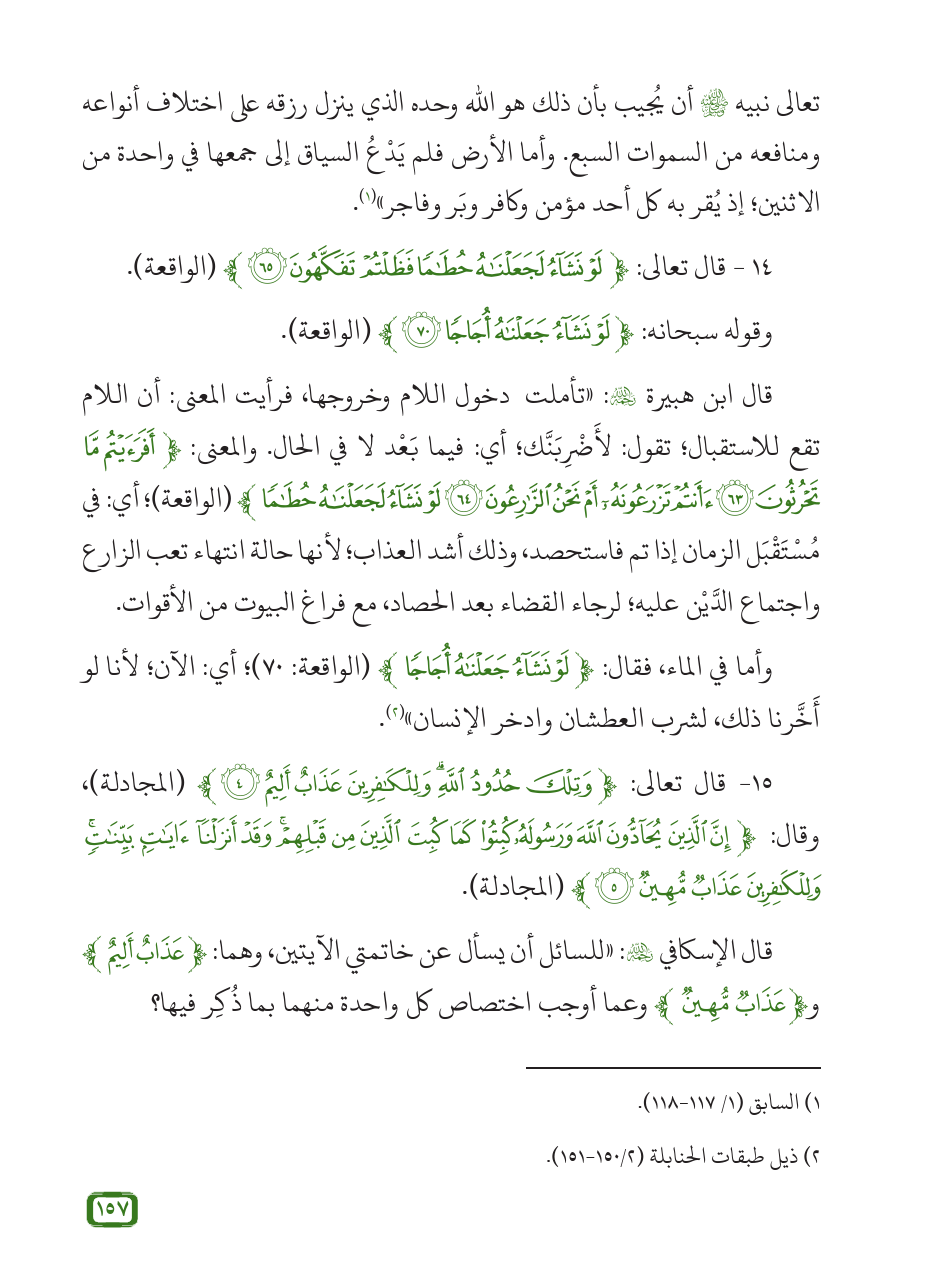 تعالى نبيه ﷺ أن يُجيب بأن ذلك هو الله وحده الذي ينزل رزقه على اختلاف أنواعه
ومنافعه من السموات السبع. وأما الأرض فلم يَدْعُ السياق إلى جمعها في واحدة من
الاثنين؛ إذ يُقر به كل أحد مؤمن وكافر وبَر وفاجر»(١).
١٤ - قال تعالى: ﴿ لَوْ نَشَآءُ لَجَعَلْنَٰهُ حُطَٰمًا فَظَلْتُمْ تَفَكَّهُونَ ٦٥ ﴾ (الواقعة).
وقوله سبحانه: ﴿ لَوْ نَشَآءُ جَعَلْنَٰهُ أُجَاجًا ٧٠ ﴾ (الواقعة).
قال ابن هبيرة ﵀: «تأملت دخول اللام وخروجها، فرأيت المعنى: أن اللام
تقع للاستقبال؛ تقول: لأَضْرِبَنَّك؛ أي: فيما بَعْد لا في الحال. والمعنى: ﴿ أَفَرَءَيْتُم مَّا
تَحْرُثُونَ ٦٣ ءَأَنتُمْ تَزْرَعُونَهُۥٓ أَمْ نَحْنُ ٱلزَّٰرِعُونَ ٦٤ لَوْ نَشَآءُ لَجَعَلْنَٰهُ حُطَٰمًا ﴾ (الواقعة)؛ أي: في
مُسْتَقْبَل الزمان إذا تم فاستحصد، وذلك أشد العذاب؛ لأنها حالة انتهاء تعب الزارع
واجتماع الدَّيْن عليه؛ لرجاء القضاء بعد الحصاد، مع فراغ البيوت من الأقوات.
وأما في الماء، فقال: ﴿ لَوْ نَشَآءُ جَعَلْنَٰهُ أُجَاجًا ﴾ (الواقعة: ٧٠)؛ أي: الآن؛ لأنا لو
أَخَّرنا ذلك، لشرب العطشان وادخر الإنسان»(٢).
١٥- قال تعالى: ﴿ وَتِلْكَ حُدُودُ ٱللَّهِ ۗ وَلِلْكَٰفِرِينَ عَذَابٌ أَلِيمٌ ٤ ﴾ (المجادلة)،
وقال: ﴿ إِنَّ ٱلَّذِينَ يُحَآدُّونَ ٱللَّهَ وَرَسُولَهُۥ كُبِتُوا۟ كَمَا كُبِتَ ٱلَّذِينَ مِن قَبْلِهِمْ ۚ وَقَدْ أَنزَلْنَآ ءَايَٰتٍۭ بَيِّنَٰتٍ ۚ
وَلِلْكَٰفِرِينَ عَذَابٌ مُّهِينٌ ٥ ﴾ (المجادلة).
قال الإسكافي ﵀: «للسائل أن يسأل عن خاتمتي الآيتين، وهما: ﴿ عَذَابٌ أَلِيمٌ ﴾
و﴿ عَذَابٌ مُّهِينٌ ﴾ وعما أوجب اختصاص كل واحدة منهما بما ذُكِر فيها؟
١) السابق (١/ ١١٧-١١٨).
٢) ذيل طبقات الحنابلة (٢/ ١٥٠-١٥١).
١٥٧